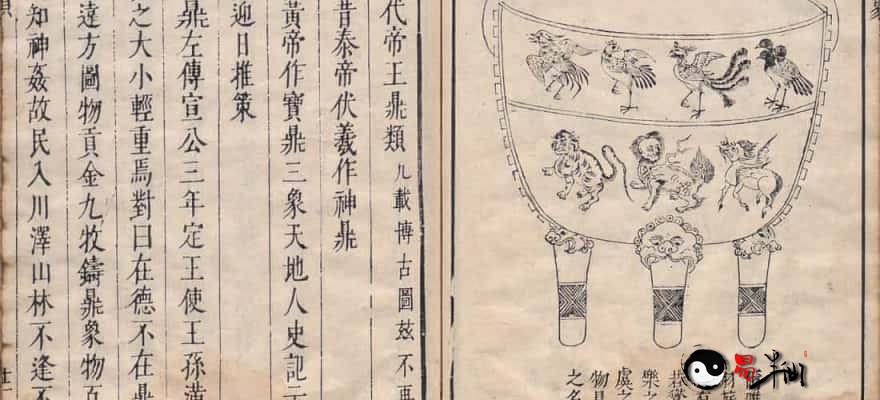 樂之
虞之
物具
之名
代帝王鼎類 凡載博古圖玆不再
昔泰帝伏羲作神鼎
黃帝作寶鼎三象天地人史記云
迎日推策
鼎左傳宣公三年定王使王孫滿
之大小輕重焉對曰在德不在鼎
遠方圖物貢金九牧鑄鼎象物百
知神姦故民入川澤山林不逢不
易半仙